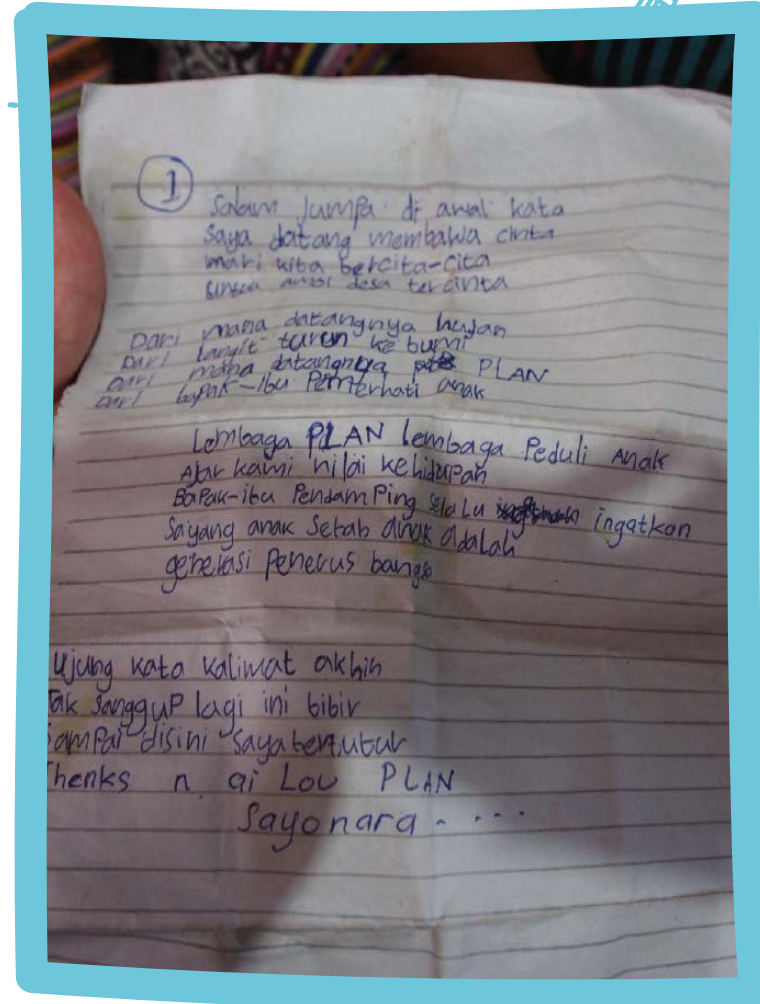 1
Salam Jumpa di awal kata
Saya datang membawa cinta
mari kita bercita-cita
desa tercinta
Dari mana datangnya hujan
Dari langit turun ke bumi
Dari mana datangnya PLAN
Dari bapak-ibu Pemerhati anak
Lembaga PLAN lembaga Peduli Anak
Ajar kami nilai kehidupan
Bapak-ibu Pendamping selalu ingatkan
Sayang anak Sebab anak adalah
generasi Penerus bangsa
Ujung kata kalimat akhir
Tak Sanggup lagi ini bibir
Sampai disini Saya bertutur
Thenks n ai Lou PLAN
Sayonara - ...